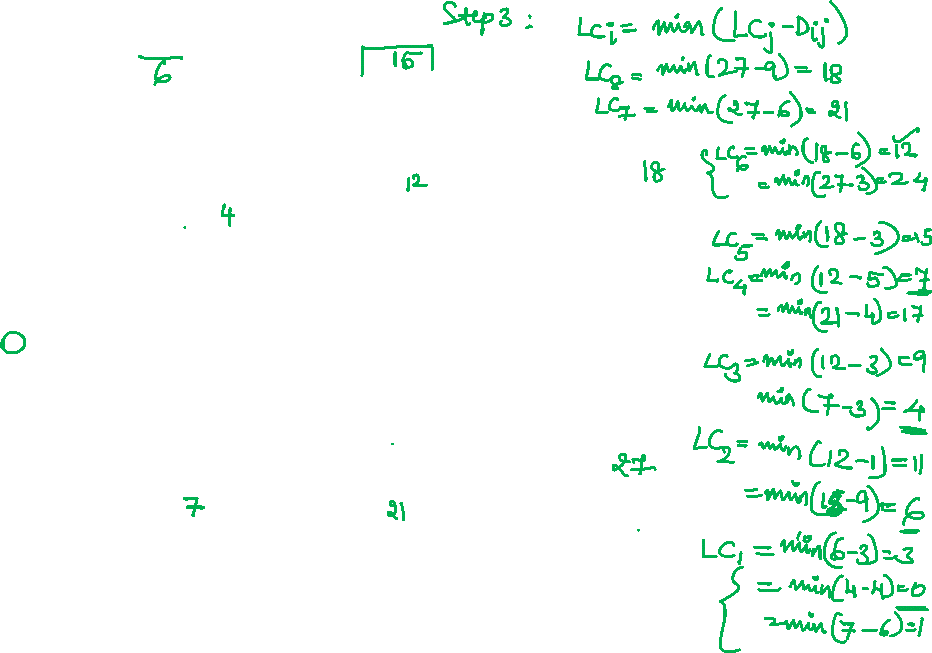 Step 3 :
LCi = min (LCj - Dij)
6
15
LC8 = min (27-9) = 18
LC7 = min (27-6) = 21
LC6 = min (18-6) = 12 ✓
18
= min (27-3) = 24
12
4
LC5 = min (18-3) = 15
LC4 = min (12-5) = 7
= min (21-4) = 17
0
LC3 = min (12-3) = 9
min (7-3) = 4
LC2 = min (12-1) = 11
27
= min (15-9) = 6
7
21
LC1 = min (6-3) = 3
= min (4-4) = 0
= min (7-6) = 1